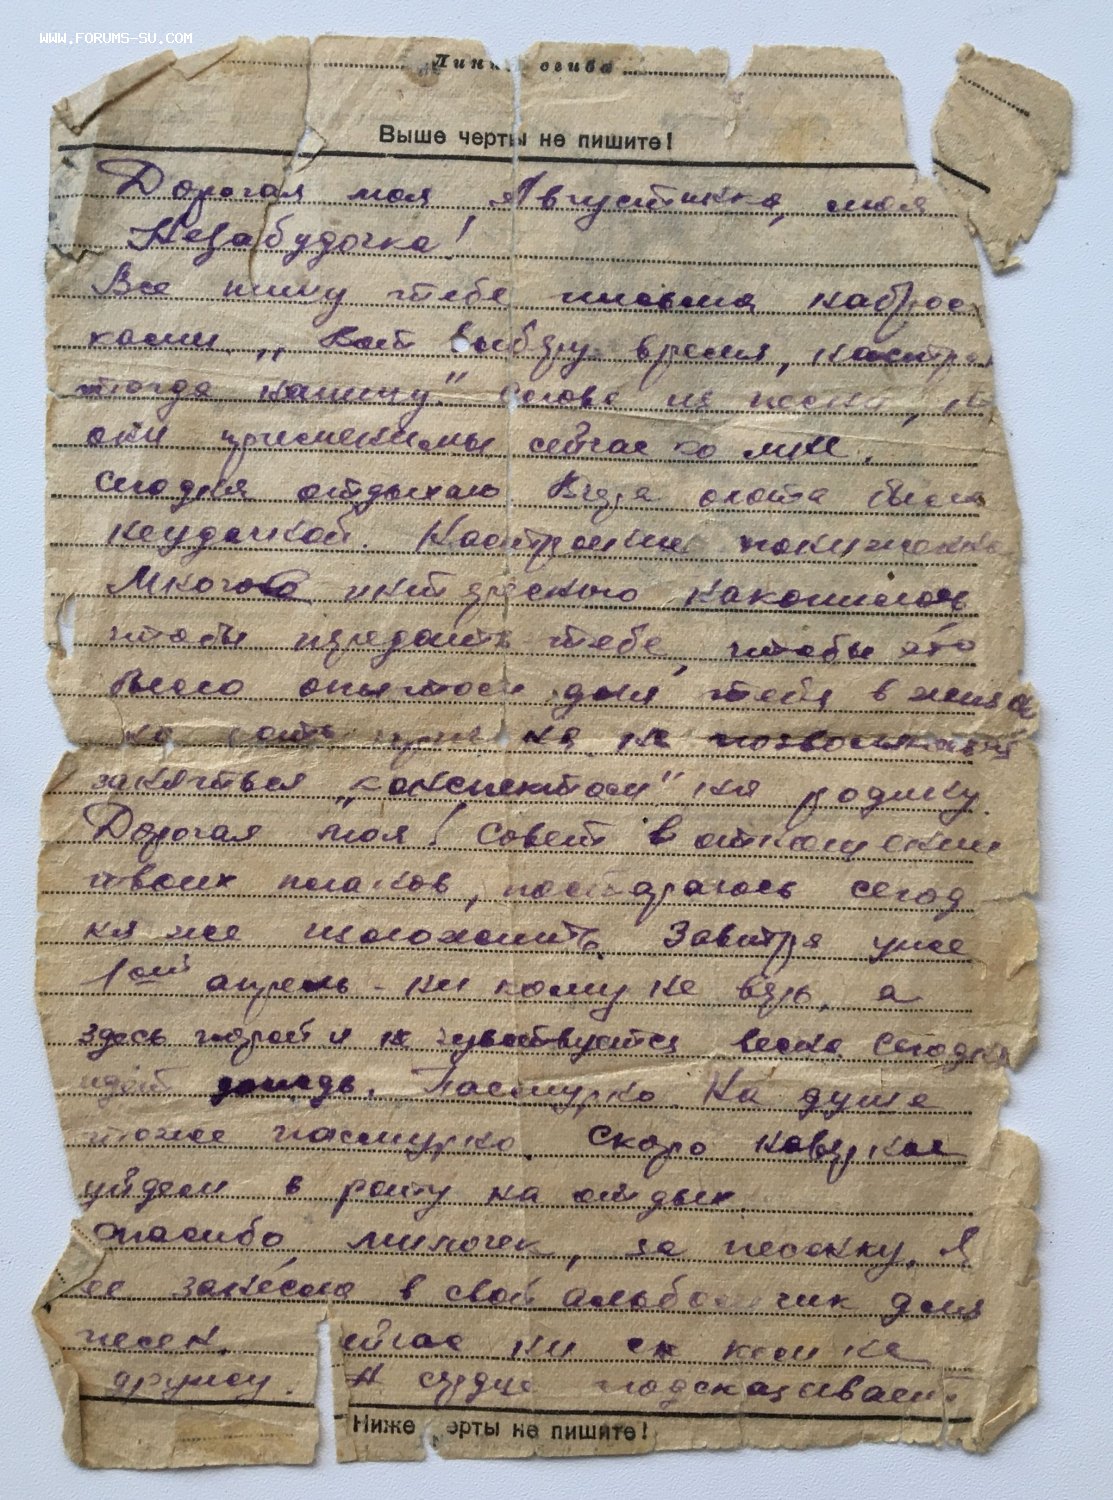 WWW.FORUMS-SU.COM
Линия сгиба
Выше черты не пишите!
Дорогая моя Августинка, моя
Незабудочка!
Все пишу тебе письма наброс
ками. „Вот выберу время, настро
тогда напишу." Слова из песни, но
они применимы сейчас ко мне.
Сегодня отдыхаю. Вчера охота была
неудачной. Настроение пониженное
Много интересного накопилось
чтобы передать тебе, чтобы это
было опытом для тебя в
не позволяет
заняться „конспектом" на родину.
Дорогая моя! Совет в отношении
твоих планов, постараюсь сегод
ня же изложить. Завтра уже
1ое апрель - ни кому не верь, а
здесь порой и не чувствуется весна. Сегодня
идет дождь. Пасмурно. На душе
тоже пасмурно. Скоро наверное
уйдем в роту на отдых.
Спасибо, милочек, за песенку. Я
ее занесла в свой альбомчик для
песен. ейчас ни с кем не
дружу. А сердце подсказывает
Ниже черты не пишите!